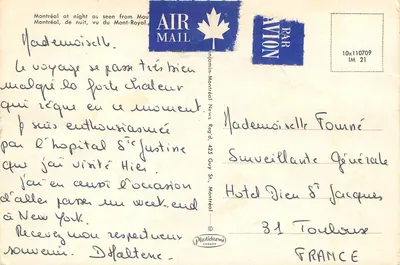 Montréal at night as seen from Mou
Montréal, de nuit, vu du Mont-Royal,
AIR
MAIL
PAR
AVION
10x110709
IM 21
Mademoiselle.
Le voyage se passe très bien
malgré la forte chaleur
qui règne en ce moment.
suis enthousiasmée
par l'hopital Ste Justine
que j'ai visité Hier.
j'ai eu aussi l'occasion
d'aller passer un week.end
à New York.
Recevez mon respectueux
souvenir.
Benjamin Montréal News Reg'd, 425 Guy St., Montréal
Plastichrome
Mademoiselle Fourné
Surveillante Générale
Hotel Dieu St Jacques
31 Toulouse
FRANCE